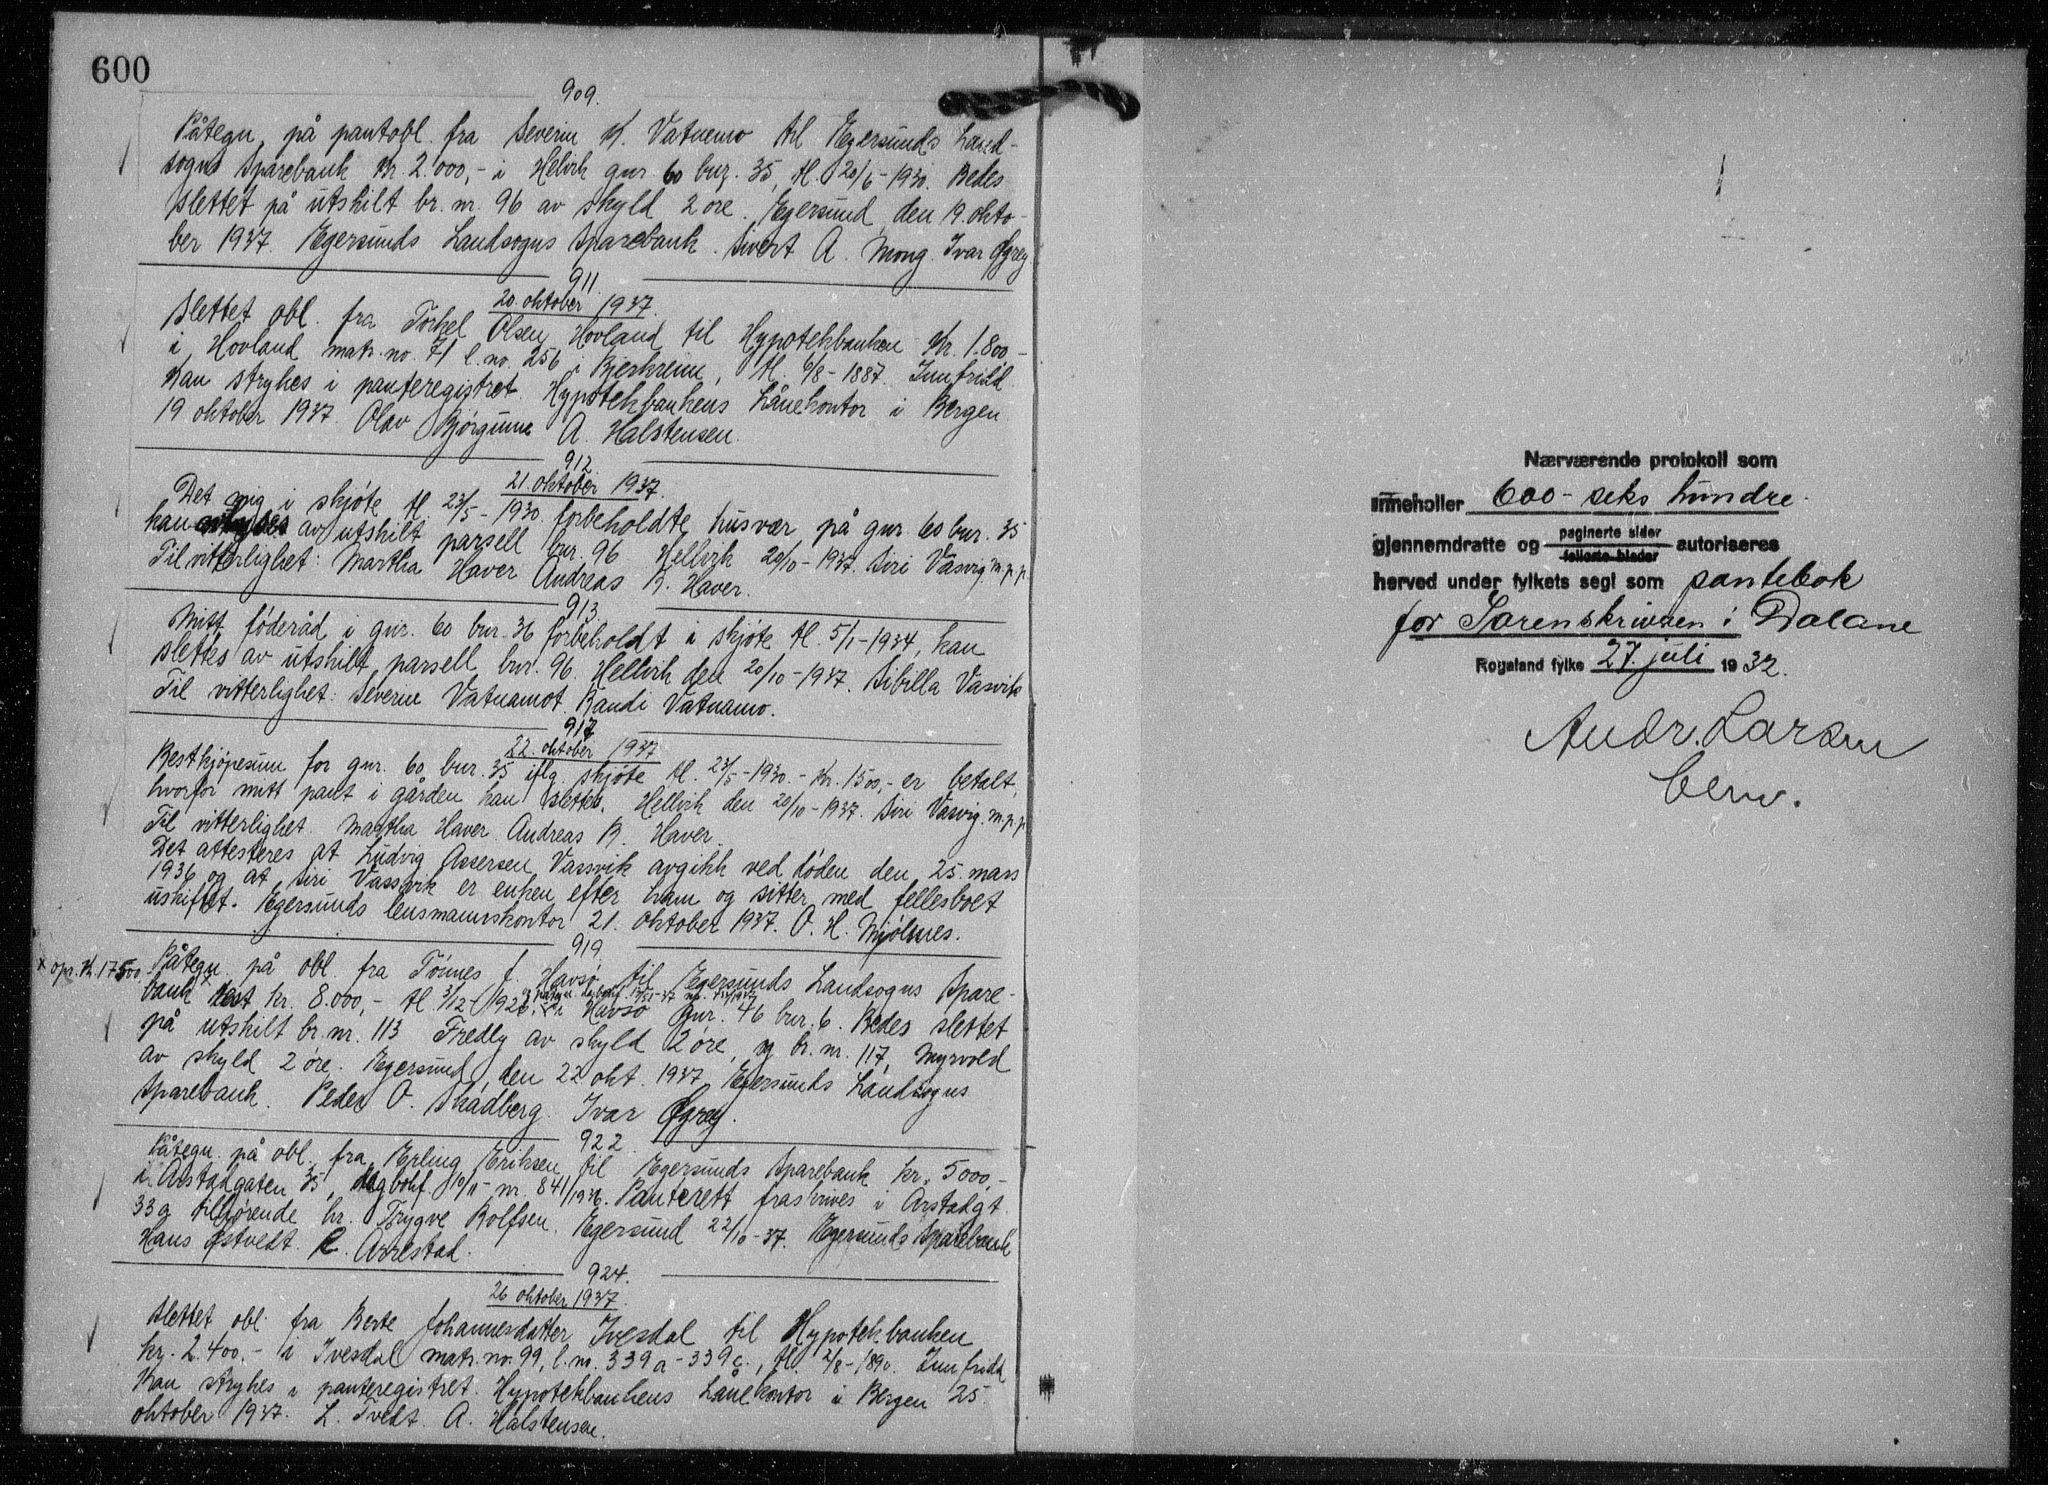 600
909.
Påtegn. på pantobl. fra Severin K. Vatnemo til Egersunds Land-
sogns Sparebank kr. 2.000,- i Helvik gnr. 60 bnr. 35, tl. 20/6-1930. Bedes
slettet på utskilt br. nr. 96 av skyld 2 øre. Egersund, den 19. okto-
ber 1937. Egersunds Landsogns Sparebank. Sivert A. Mong. Ivar Øgrey
911.
20. oktober 1937.
Slettet obl. fra Torkel Olsen Hovland til Hypotekbanken kr. 1.800,-
i Hovland matr. no. 71 l. no. 256 i Bjerkreim, tl. 6/8-1887. Innfridd.
Kan strykes i panteregistret. Hypotekbankens Lånekontor i Bergen
19 oktober 1937. Olav Bjørgum A. Halstensen.
912.
21. oktober 1937.
Det mig i skjøte tl. 23/5-1930 forbeholdte husvær på gnr. 60 bnr. 35
kan av utskilt parsell bnr. 96 Hellvik 20/10-1937. Siri Vasvig. m.p.p.
Til vitterlighet: Martha Haver Andreas K. Haver.
913.
Mitt føderåd i gnr. 60 bnr. 36 forbeholdt i skjøte tl. 5/1-1934, kan
slettes av utskilt parsell bnr. 96. Hellvik den 20/10-1937. Sibilla Vasvik
Til vitterlighet: Severin Vatnamot. Randi Vatnamo.
917.
22. oktober 1937
Restkjøpesum for gnr. 60 bnr. 35 iflg. skjøte tl. 23/5-1930.- kr. 1500,- er betalt,
hvorfor mitt pant i gården kan slettes. Hellvik den 20/10-1937. Siri Vasvig. m.p.p.
Til vitterlighet. Martha Haver. Andreas K. Haver.
Det attesteres at Ludvig Assersen Vassvik avgikk ved døden den 25. mars
1936 og at Siri Vassvik er enken efter ham og sitter med fellesboet
uskiftet. Egersunds lensmannskontor 21. oktober 1937. O. H. Mjølsnes.
919
x opr. kr. 17500
Påtegn. på obl. fra Tønnes J. Havsø til Egersunds Landsogns Spare-
bank x rest kr. 8.000,- tl. 3/12-1926, i Havsø gnr. 46 bnr. 6. Bedes slettet
på utskilt br. nr. 113 Fredly av skyld 2 øre, og br. nr. 117, Myrvold
av skyld 2 øre. Egersund, den 22 okt. 1937. Egersunds Landsogns
Sparebank. Peder O. Skadberg. Ivar Øgrey.
922
Påtegn. på obl. fra Erling Eriksen til Egersunds Sparebank kr. 5000,-
i Arstadgaten 35, dagbokf. 10/11- nr. 841/1936. Panterett fraskrives i Arstadgt
33a tilhørende hr. Trygve Rolfsen. Egersund 22/10-37. Egersunds Sparebank
Hans Østvedt. R. Arrestad.
924.
26 oktober 1937.
Slettet obl. fra Berte Johannesdatter Ivesdal til Hypotekbanken
kr. 2.400.- i Ivesdal matr. no. 99, l. nr. 339a-339c., tl. 2/8-1890. Innfridd
Kan strykes i panteregistret. Hypotekbankens Lånekontor i Bergen 25.
oktober 1937. L. Tvedt. A. Halstensen.
Nærværende protokoll som
inneholler 600 - seks hundre -
gjennemdratte og paginerte sider autoriseres
folierte blader
herved under fylkets segl som pantebok
for Sorenskriveren i Dalane
Rogaland fylke 27. juli 1932.
Andr. Larsen